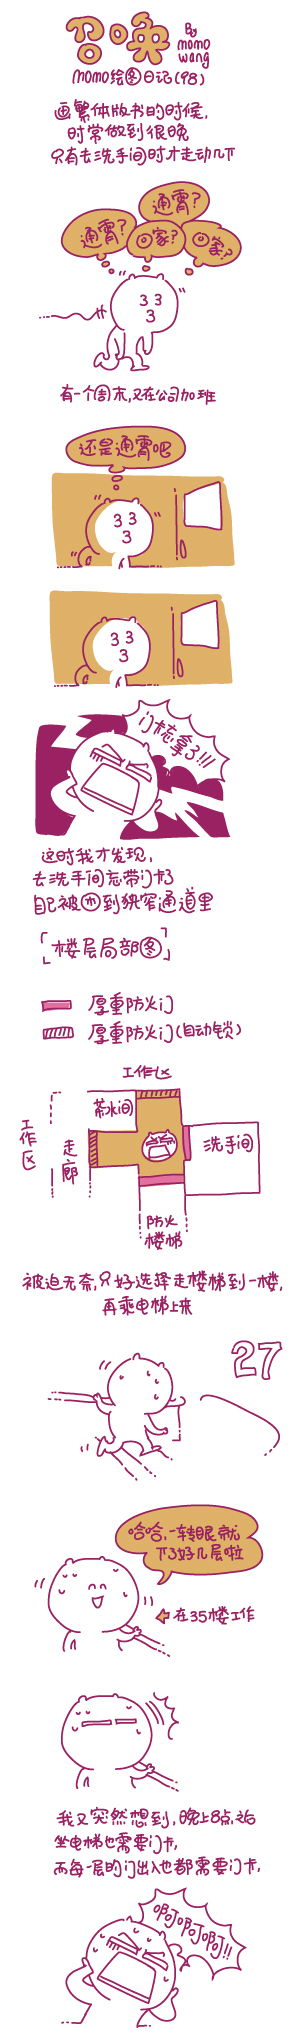 召唤
By
momo
wang
MOMO绘图日记(98)
画繁体版书的时候,
时常做到很晚
只有去洗手间时才走动几下
通霄?
通霄?
回家?
回家?
有一个周末,又在公司加班
还是通霄吧
门卡忘拿了!!!
这时我才发现,
去洗手间忘带门卡了
自己被困到狭窄通道里
「楼层局部图」
厚重防火门
厚重防火门(自动锁)
工作区
茶水间
工作区
走廊
洗手间
防火
楼梯
被迫无奈,只好选择走楼梯到一楼,
再乘电梯上来
27
哈哈,一转眼就
下了好几层啦
在35楼工作
我又突然想到,晚上8点之后
坐电梯也需要门卡,
而每一层的门出入也都需要门卡,
啊啊啊啊!!